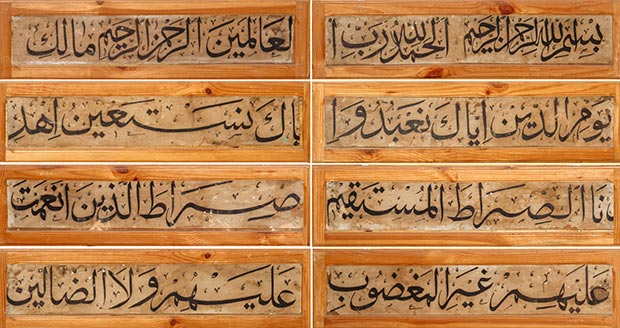 بسم الله الرحمن الرحيم الحمد لله رب ا
لعالمين الرحمن الرحيم مالك
يوم الدين اياك نعبد وا
ياك نستعين اهد
نا الصراط المستقيم
صراط الذين انعمت
عليهم غير المغضوب
عليهم ولا الضالين